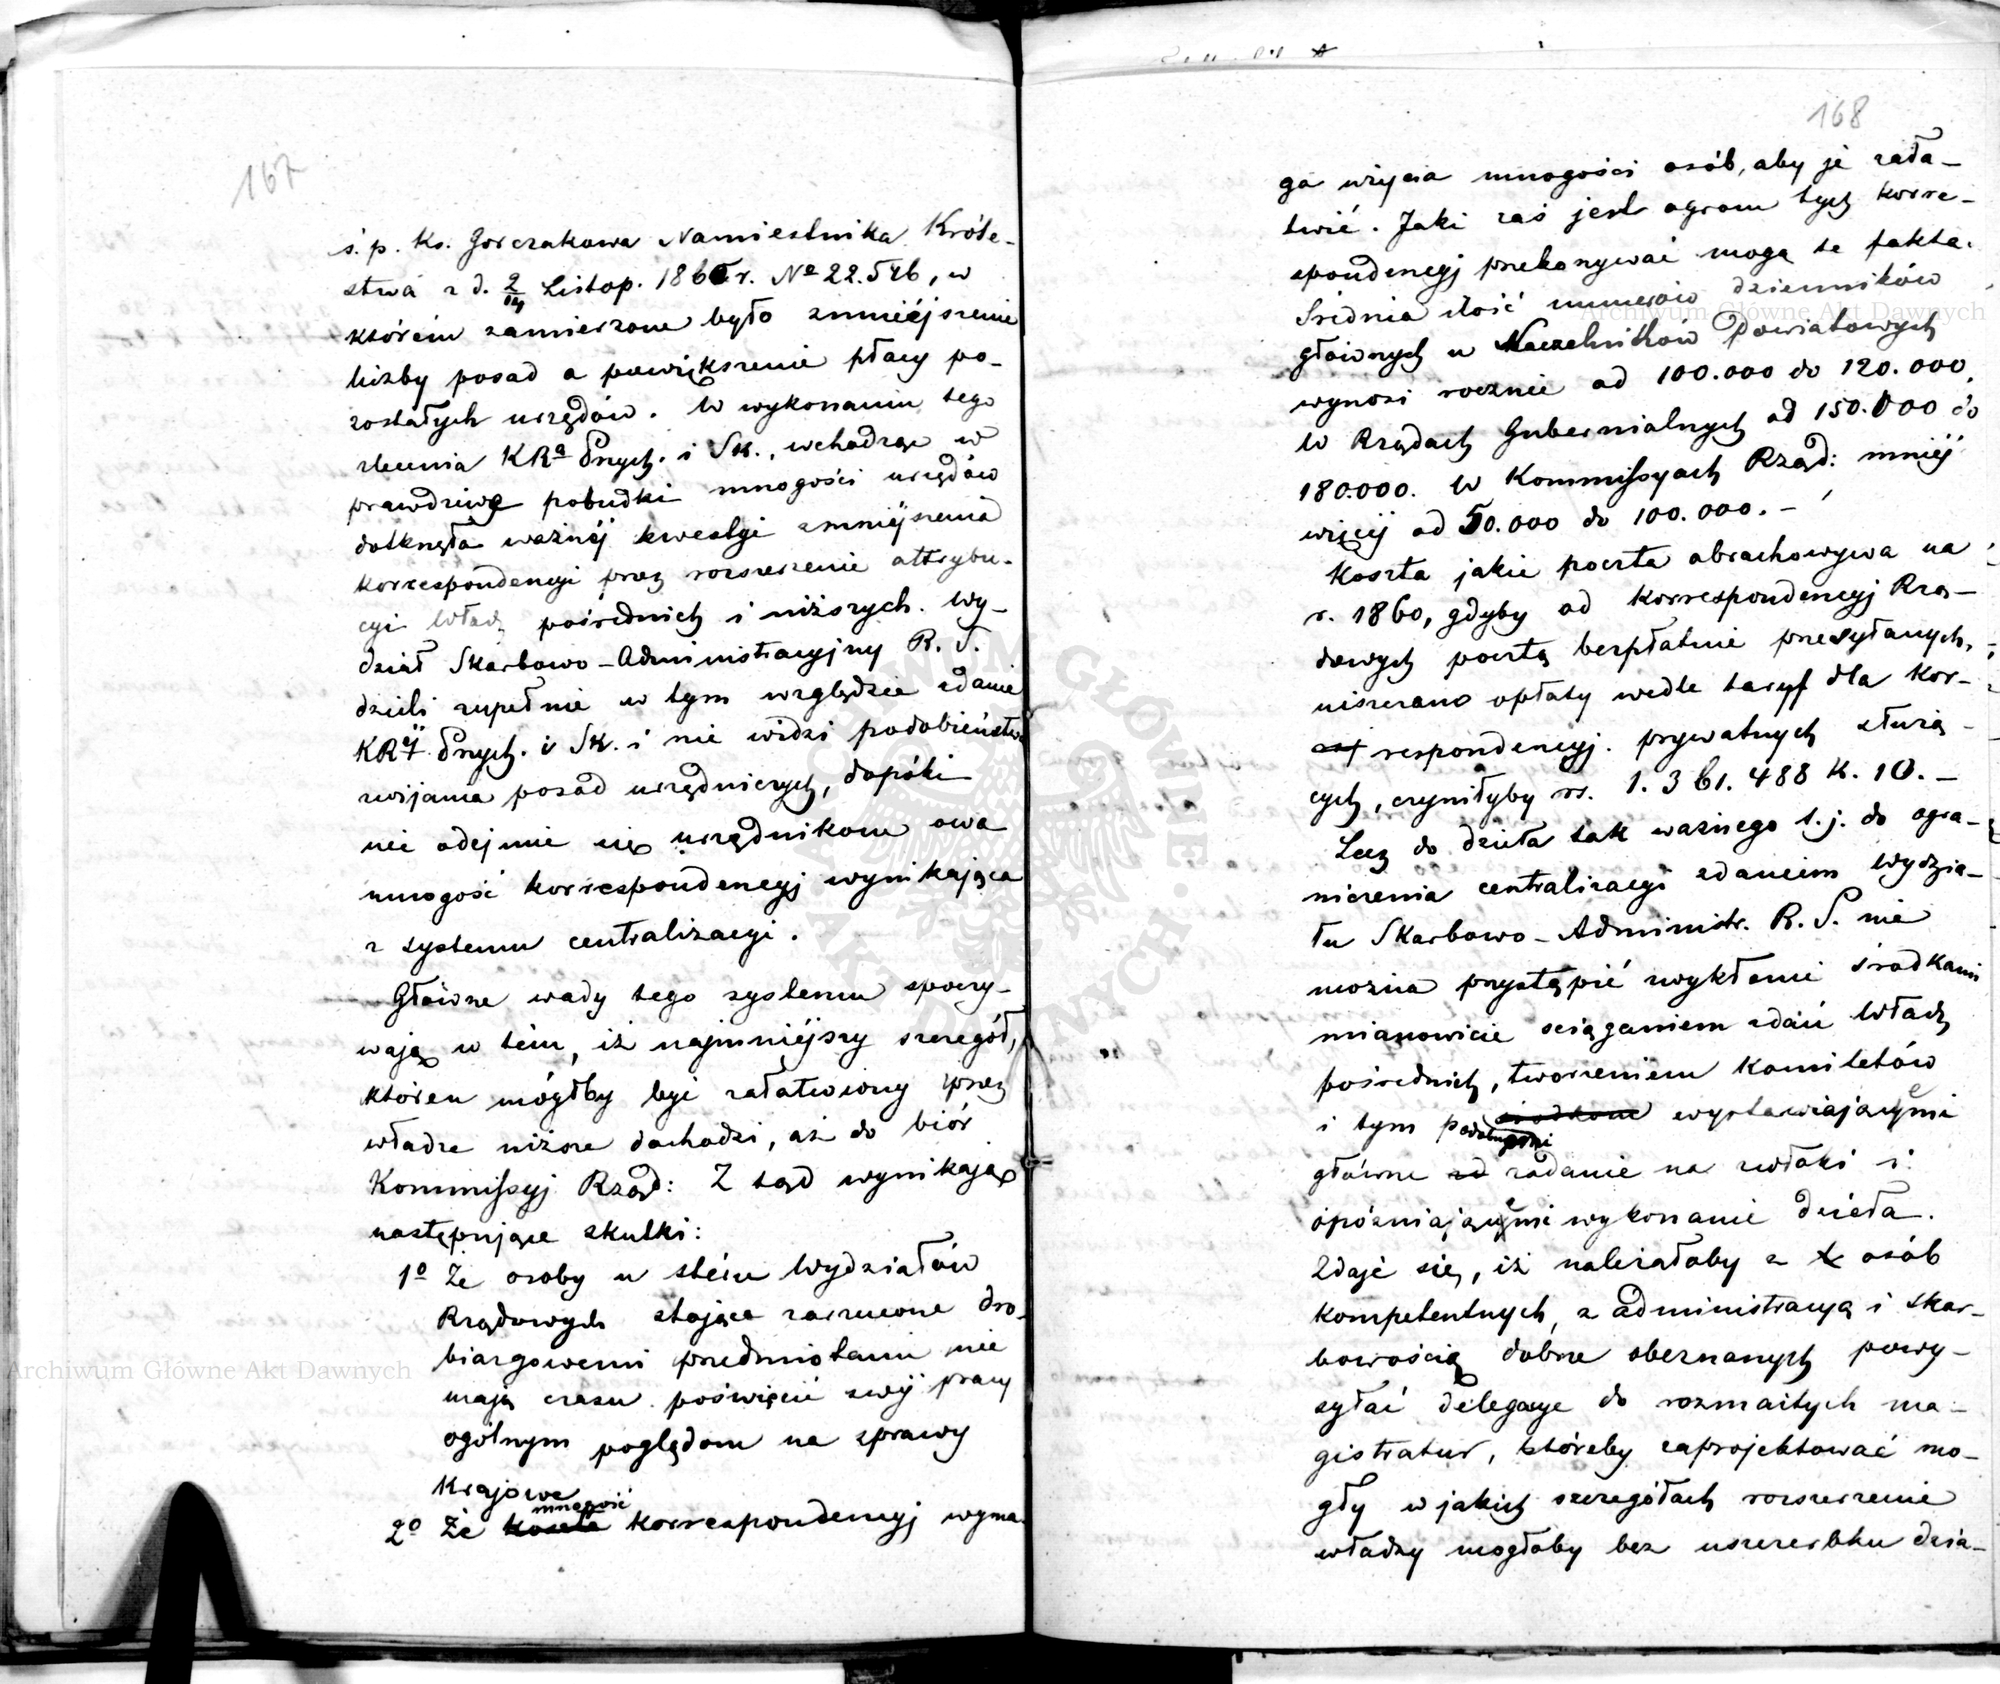 167
ś. p. Ks. Gorczakowa Namiestnika Króle-
stwa z d. 2/14 Listop. 1860 r. Nº 22.546, w
którém zamierzone było zmniéjszenie
liczby posad a powiększenie płacy po-
zostałych urzędów. W wykonaniu tego
zlecenia KRª Pnych. i Sk., wchodząc w
prawdziwe pobudki mnogości urzędów
dotknęła ważnéj kwestyi zmniéjszenia
korrespondencyi przez rozszerzenie attrybu-
cyi Władz pośrednich i niższych. Wy-
dział Skarbowo-Administracyjny R. S.
dzieli zupełnie w tym względzie zdanie
KRÿ. Pnych. i Sk. i nie widzi podobieństwa
zwijania posad urzędniczych, dopóki
nie odejmie się urzędnikom owa
mnogość korrespondencyj wynikająca
z systemu centralizacyi.
Główne wady tego systemu spoczy-
wają w tém, iż najmniéjszy szczegół,
któren mógłby być załatwiony przez
władze niższe dochodzi, aż do biór
Kommissyj Rząd: Z tąd wynikają
następujące skutki:
1º Że osoby u stéru Wydziałów
Rządowych stojące zarzucone dro-
biazgowemi przedmiotami nie
mają czasu poświęcić swéj pracy
ogólnym poglądom na sprawy
Krajowe
mnogość
2º Że koszta korrespondencyj wyma-
168
ga użycia mnogości osób, aby je zała-
twić. Jaki zaś jest ogrom tych korre-
spondencyj przekonywać mogą te fakta.
Średnia ilość numerów dzienników
głównych u Naczelników Powiatowych
wynosi rocznie od 100.000 do 120.000,
w Rządach Gubernialnych od 150.000 do
180.000. w Kommissyach Rząd: mniéj
więcéj od 50.000 do 100.000. –
Koszta jakie poczta obrachowywa na
r. 1860, gdyby od korrespondencyj Rzą-
dowych pocztą bezpłatnie przesyłanych,
uiszczano opłaty wedle taryf dla kor-
respondencyj. prywatnych służą-
cych, czyniłyby rs. 1.361.488 k. 10. –
Lecz do dzieła tak ważnego t. j. do ogra-
niczenia centralizacyi zdaniem Wydzia-
łu Skarbowo-Administr. R. S. nie
można przystąpić zwykłemi środkami
mianowicie ściąganiem zdań Władz
pośrednich, tworzeniem komitetów
i tym podobnymi środkom wystawiającémi
główne zadanie na zwłoki i
opózniającémi wykonanie dzieła.
Zdaje się, iż należałoby z osób
kompetentnych, z administracyą i skar-
bowością dobrze obeznanych powy-
syłać delegacye do rozmaitych ma-
gistratur, któreby zaprojektować mo-
gły w jakich szczegółach rozszerzenie
władzy mogłoby bez uszczerbku dzia-
Archiwum Główne Akt Dawnych
Archiwum Główne Akt Dawnych
ARCHIWUM GŁÓWNE AKT DAWNYCH